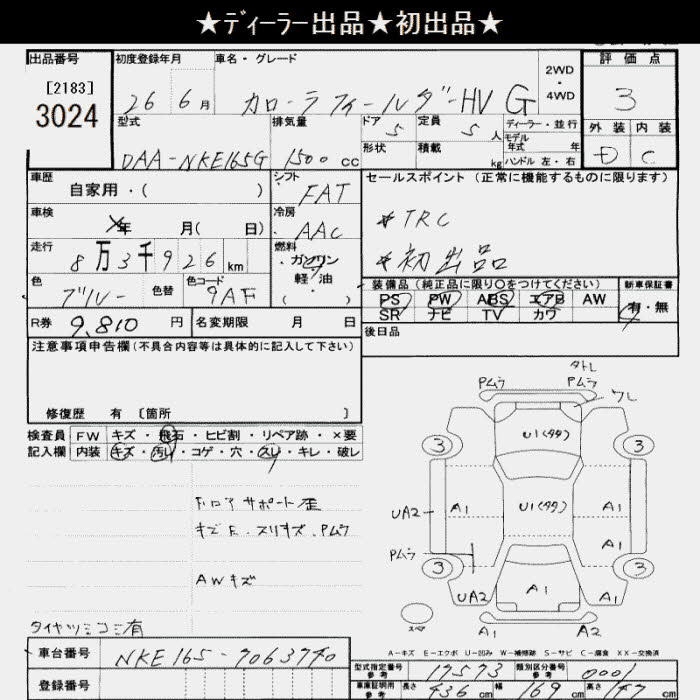 ★ディーラー出品★初出品★
出品番号
[2183]
3024
初度登録年月
26 6 月
車名・グレード
カローラフィールダーHV G
2WD
・
4WD
評価点
3
外装 内装
D C
型式
DAA-NKE165G
排気量
1500 cc
ドア 5
定員 5 人
形状
積載 kg
ディーラー・並行
モデル年式 年
ハンドル 左・右
車歴
自家用・( )
シフト
FAT
セールスポイント (正常に機能するものに限ります)
*TRC
*初出品
車検
年 月( 日)
冷房
AAC
走行
8万3千926 km
燃料
ガソリン
軽・油
・( )
色
ブルー
色替
色コード
9AF
装備品 (純正品に限り〇をつけてください)
PS PW ABS エアB AW
SR ナビ TV カワ
新車保証書
有・無
R券 9,810 円
名変期限 月 日
後日品
注意事項申告欄(不具合内容等は具体的に記入して下さい)
修復歴 有 〔箇所 〕
検査員
記入欄
FW キズ・飛石・ヒビ割・リペア跡・×要
内装 キズ・汚れ・コゲ・穴・スレ・キレ・破レ
フロアサポート歪
キズE、スリキズ、Pムラ
AWキズ
タイヤツミコミ有
タトレ
Pムラ Pムラ
ワレ
U1(タタ)
3 3
UA2 A1 U1(タタ) A1
A1
Pムラ
3 3
UA2 A1 A1
スペア
A1 A2
A-キズ E-エクボ U-凹み W-補修跡 S-サビ C-腐食 XX-交換済
車台番号
NKE165-7063740
登録番号
型式指定番号
参考
17573
類別区分番号
参考
0001
車庫証明用
参考
長さ 436 cm 幅 169 cm 高さ 147 cm